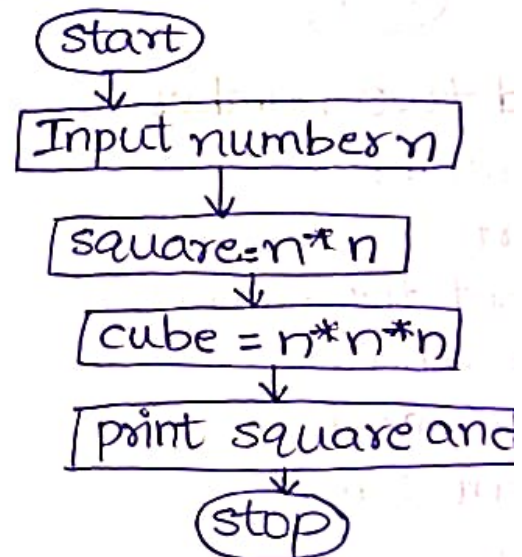 start
Input number n
square=n*n
cube = n*n*n
print square and
stop